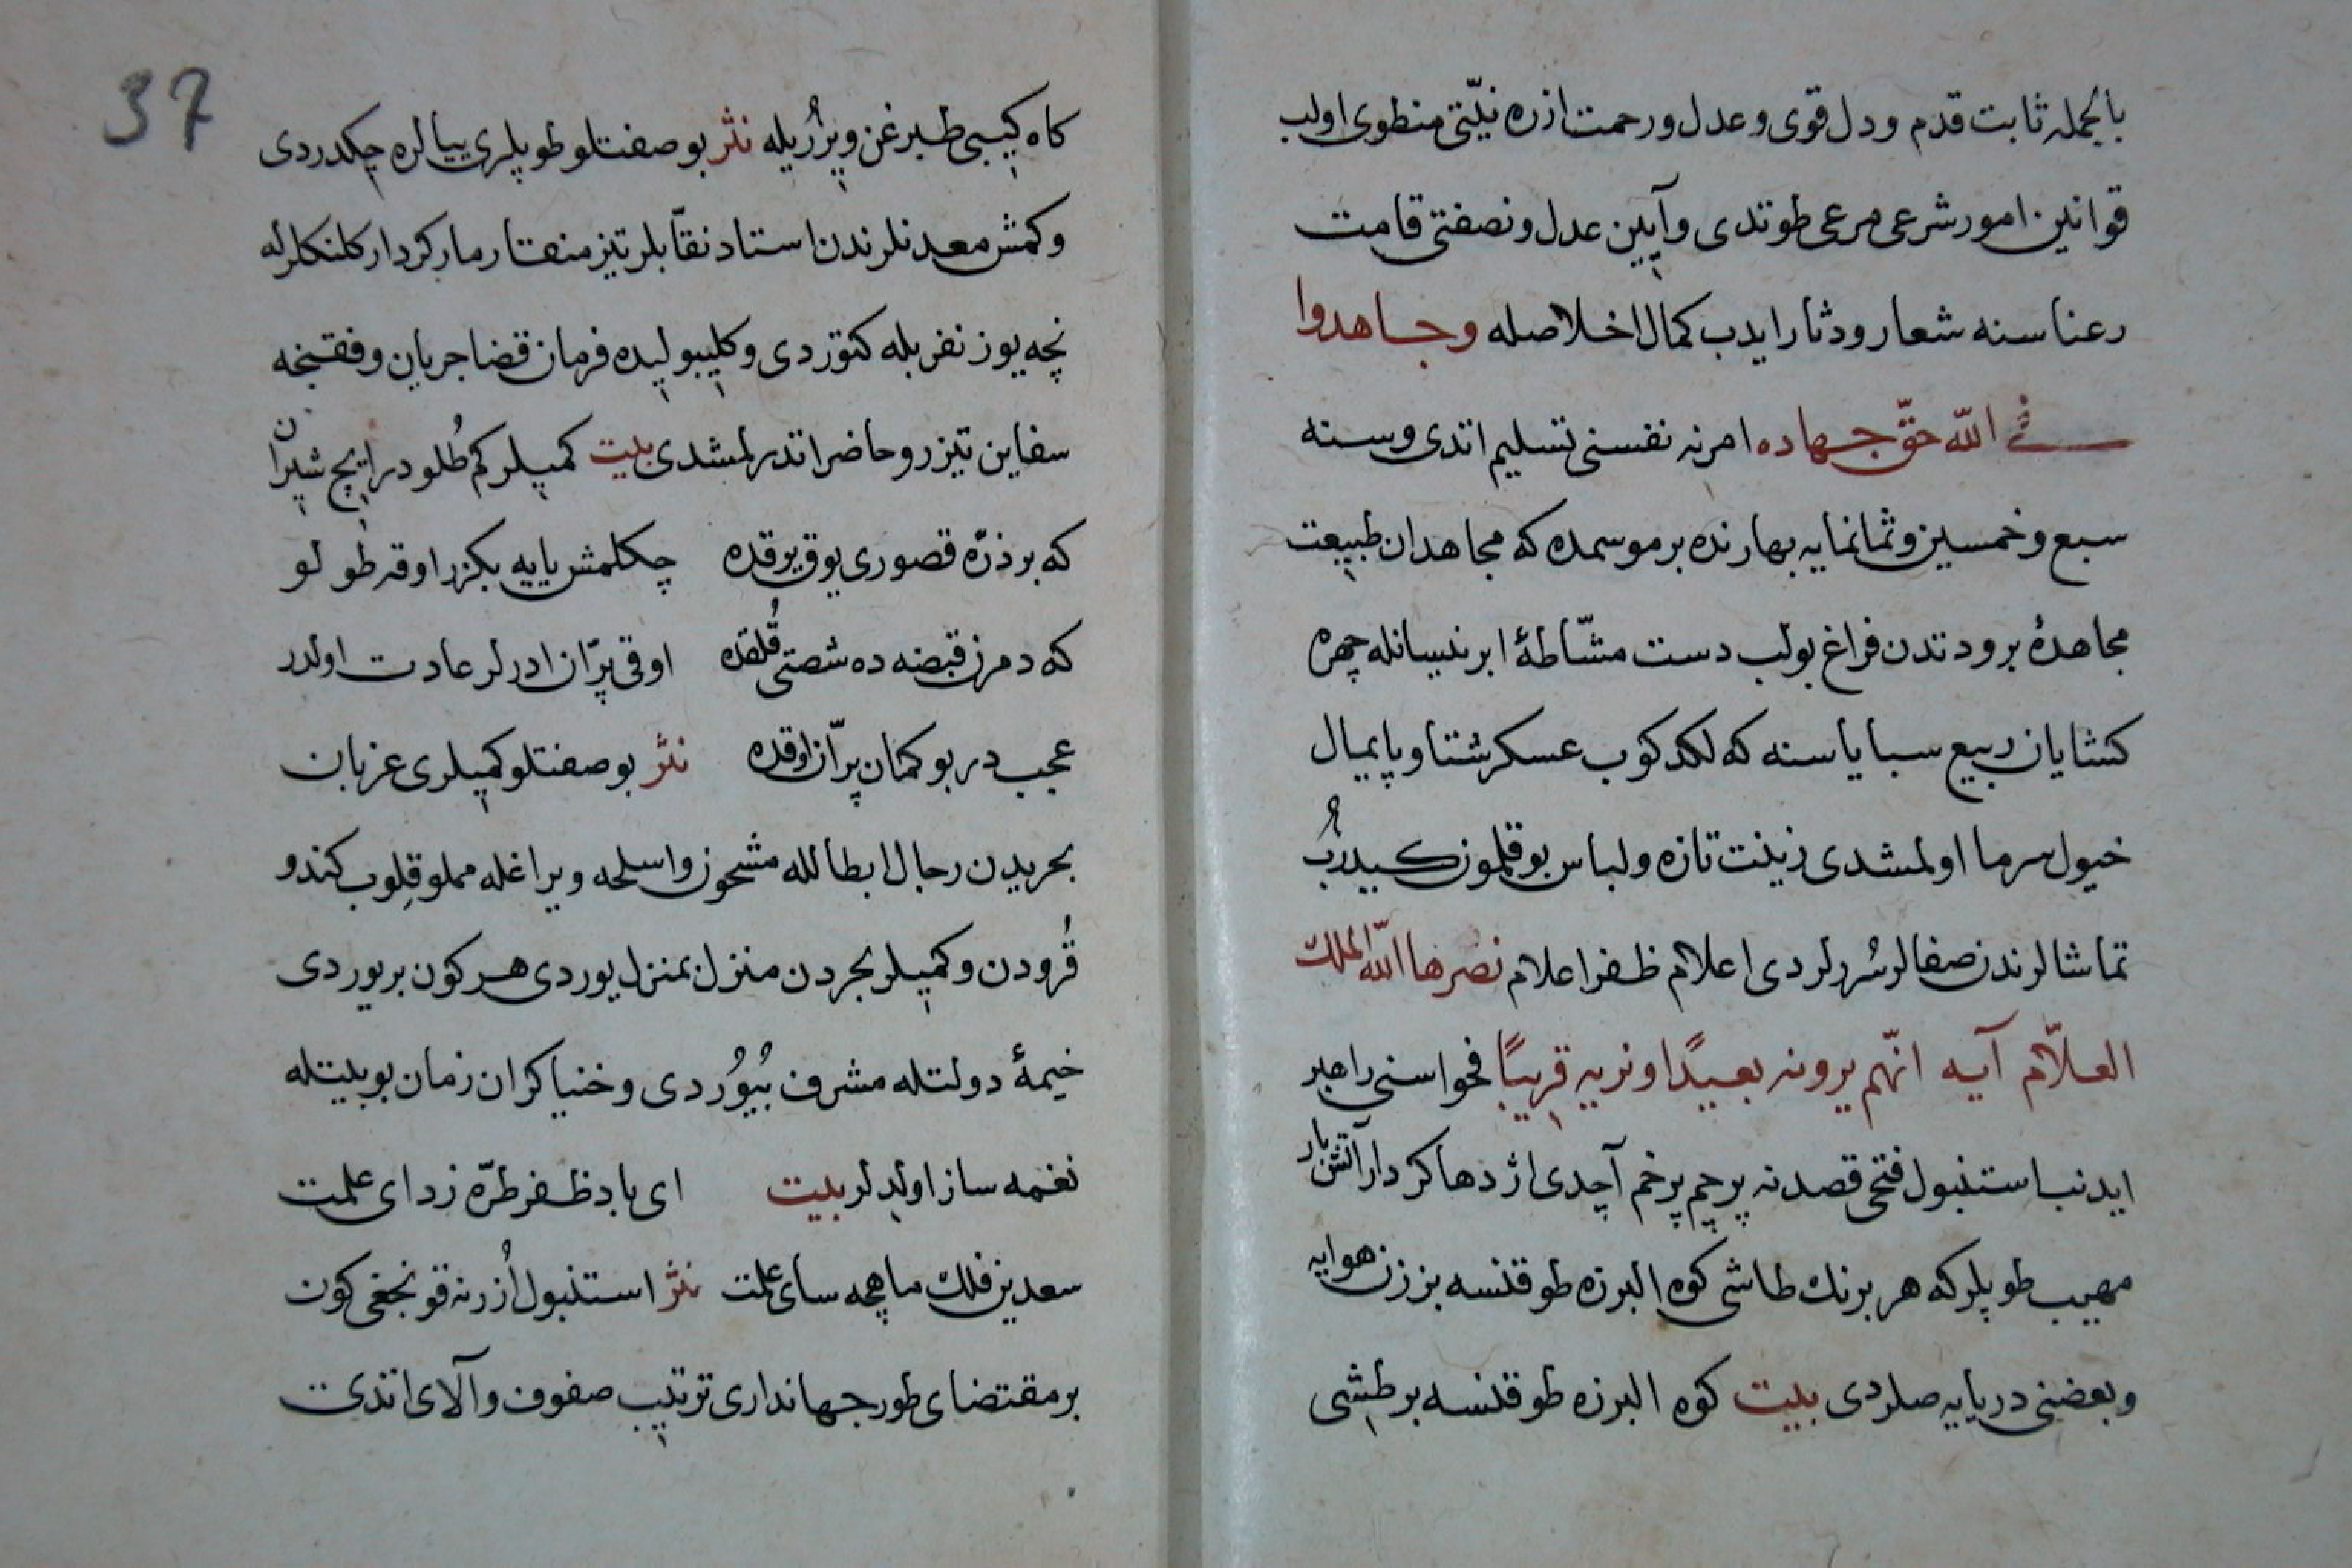 بالجمله ثابت قدم و دل قوی و عدل و رحمت ازره نیّتی منطوی اولب
قوانین امور شرعی مرعی طوتدی و آیین عدل و نصفتی قامت
رعناسنه شعار و دثار ایدب کمال اخلاصله وجاهدوا
فی الله حقّ جهاده امرنه نفسنی تسلیم اتدی و سنه
سبع و خمسین و ثمانمایه بهارنده بر موسمده که مجاهدان طبیعت
مجاهدهٔ برودتدن فراغ بولب دست مشّاطهٔ ابر نیسانله چهره
کشایان ربیع سبایاسنه که لکدکوب عسکر شتا و پایمال
خیول سرما اولمشدی زینت تازه و لباس بوقلمون کیدرُب
تماشالرندن صفالر سُررلردی اعلام ظفر اعلام نصرها الله الملك
العلّام آیه انّهم یرونه بعیدًا ونریه قریبًا فحواسنی راهبر
ایدنب استنبول فتحی قصدنه پرچم پرخم آچدی اژدها کردار آتش بار
مهیب طوپلر که هر برنك طاشی کوه البرزه طوقنسه بززن هوایه
و بعضنی دریایه صلردی بیت کوه البرزه طوقنسه بر طشی
37
کاه کیبی طبرغن ویررُیله نثر بو صفتلو طوپلری پیالره چکدردی
و کمش معدنلرندن استاد نقّابلر تیز منقار مار کردار کلنکلرله
نچه یوز نفر بله کتوردی و کلیبولیده فرمان قضا جریان وفقنجه
سفاین تیزرو حاضر اتدرلمشدی بیت کمیلر کم طُلودر ایچ شیران
که بر ذرّه قصوری یوق یرقده چکلمش یایه بکزر اوقه طولو
که دمرن قبضه ده شصتی قُلقده اوقی پرّان ادرلر عادت اولدر
عجب در بو کمان پرّان اوقده نثر بو صفتلو کمیلری عزبان
بحریدن رجال ابطالله مشحون و اسلحه و یراغله مملو قلوب کندو
قُرودن و کمیلر بحردن منزل بمنزل یوردی هر کون بر یوردی
خیمهٔ دولتله مشرف بُیوُردی و خنیاکران زمان بو بیتله
نغمه ساز اولدلر بیت ای باد ظفر طرّه زدای علمت
سعدین فلك ماهچه سای علمت نثر استنبول اُزرنه قونجغی کون
بر مقتضای طور جهانداری ترتیب صفوف و آلای اتدی